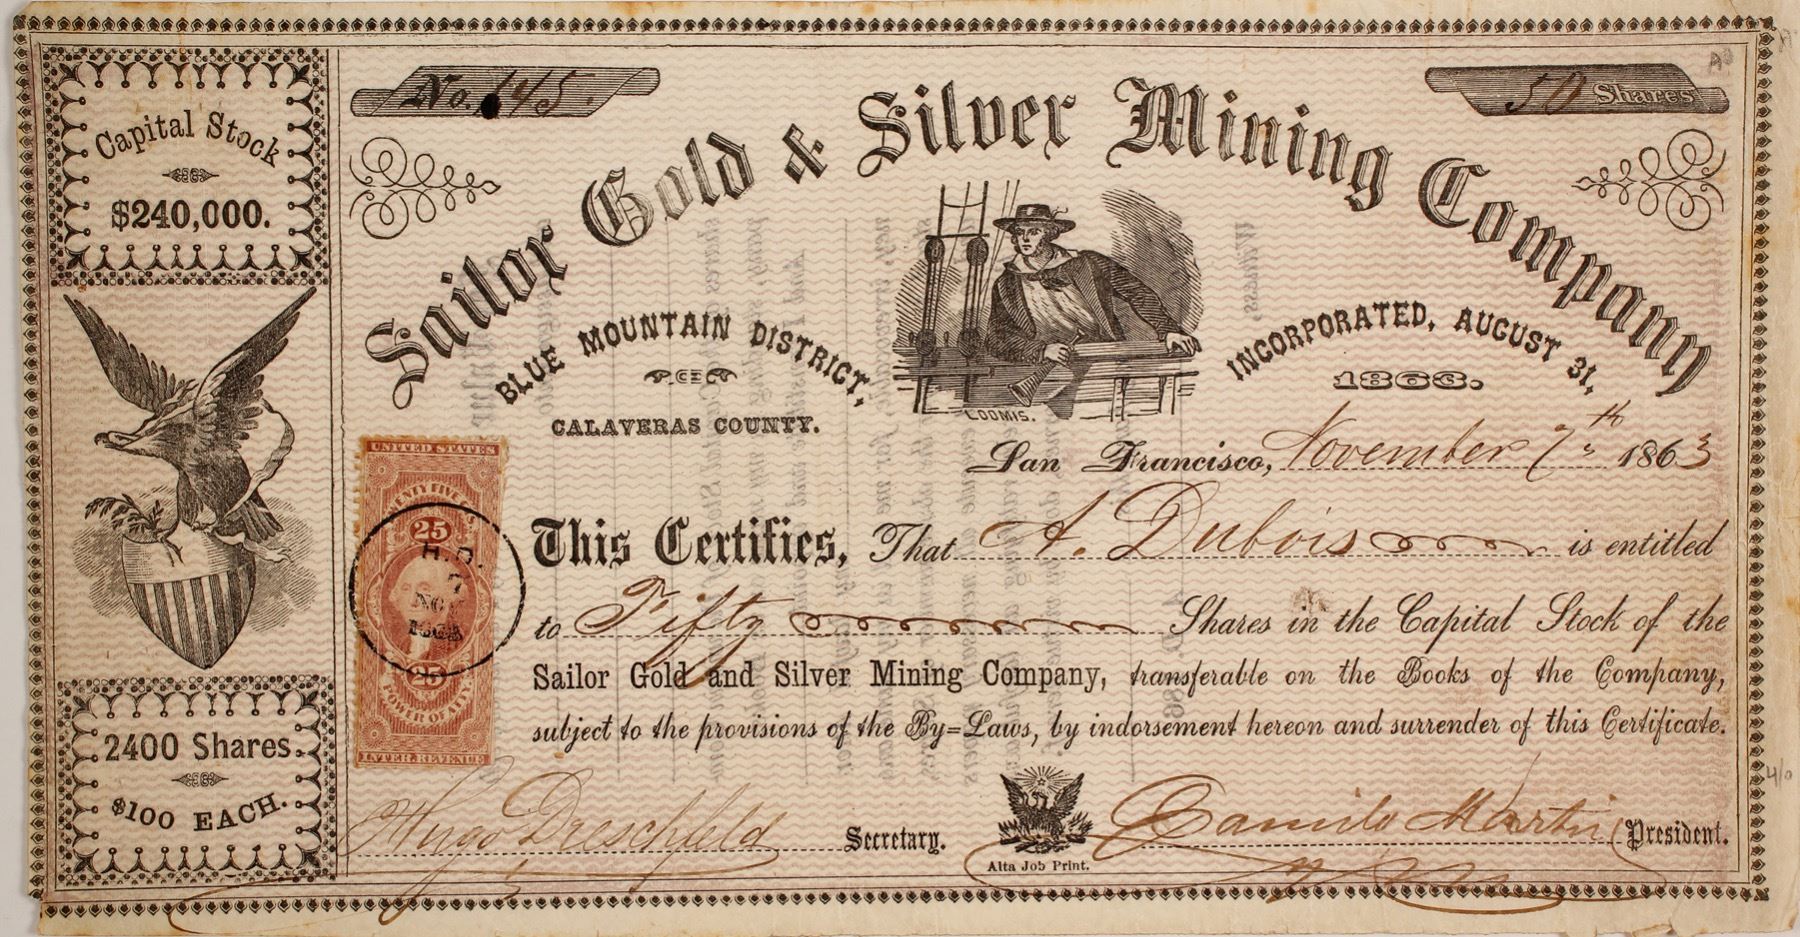 No. 145.
50 Shares
Capital Stock
$240,000.
Sailor Gold & Silver Mining Company
BLUE MOUNTAIN DISTRICT,
CALAVERAS COUNTY.
LOOMIS.
INCORPORATED, AUGUST 31,
1863.
San Francisco, November 7th 1863
UNITED STATES
TWENTY FIVE C'S
25
H.D.
7
NOV
1863
25
POWER OF AT'Y
INTER. REVENUE
This Certifies, That A. Dubois is entitled
to Fifty Shares in the Capital Stock of the
Sailor Gold and Silver Mining Company, transferable on the Books of the Company,
subject to the provisions of the By=Laws, by indorsement hereon and surrender of this Certificate.
2400 Shares.
$100 EACH.
Hugo Dreschfeld Secretary.
Alta Job Print.
Camilo Martin President.